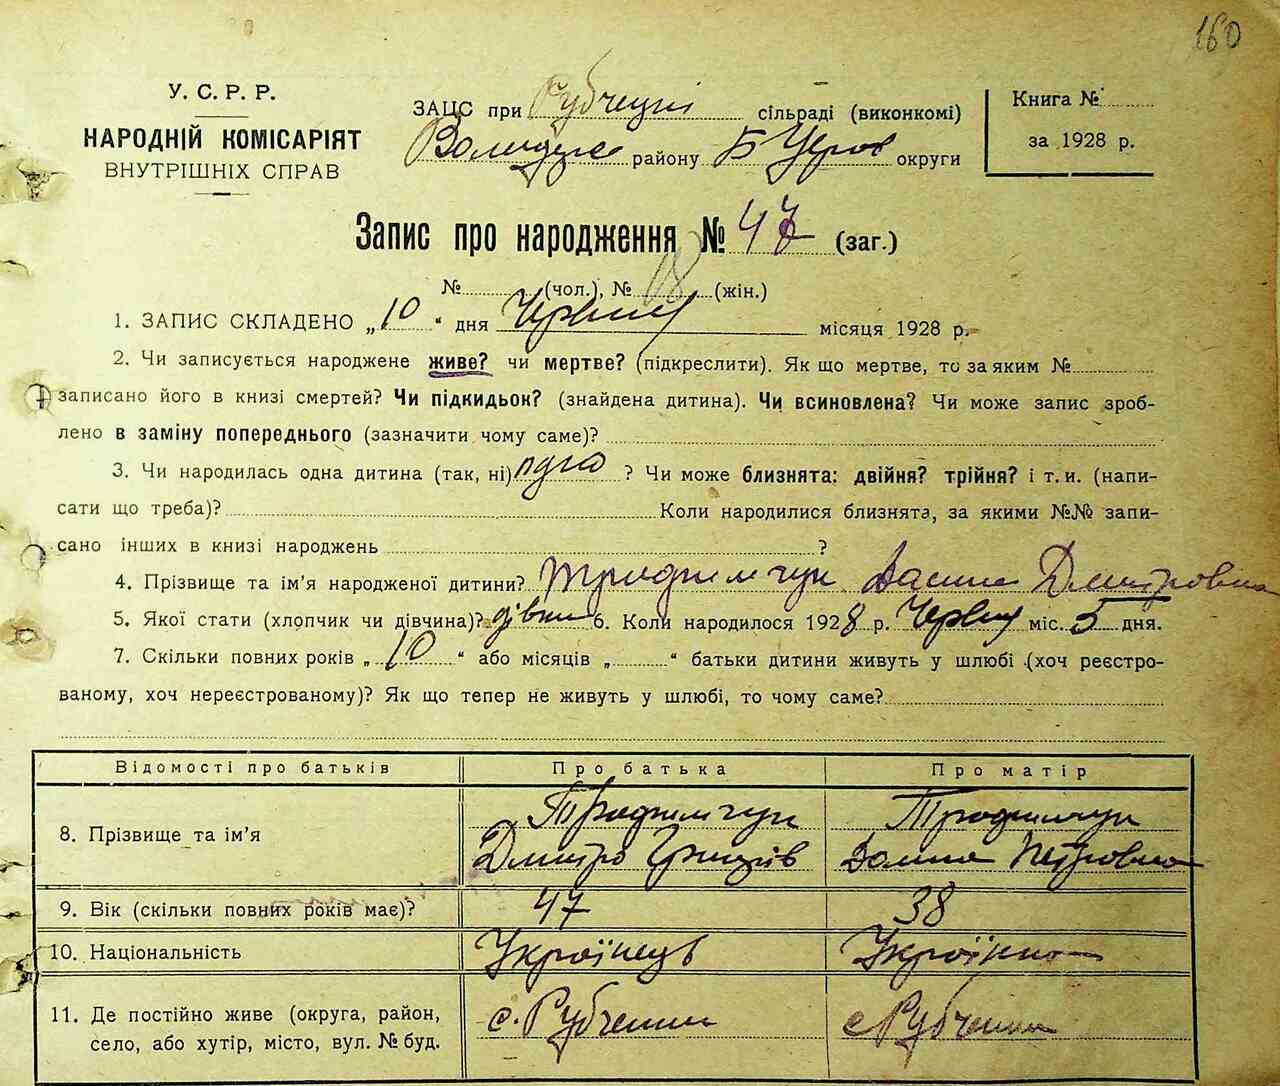 160
У. С. Р. Р.
НАРОДНІЙ КОМІСАРІЯТ
ВНУТРІШНІХ СПРАВ
ЗАЦС при Рубчецкі сільраді (виконкомі)
району округи
Книга №
за 1928 р.
Запис про народження № 47 (заг.)
№ (чол.), № 18 (жін.)
1. ЗАПИС СКЛАДЕНО „10“ дня Червня місяця 1928 р.
2. Чи записується народжене живе? чи мертве? (підкреслити). Як що мертве, то за яким №
записано його в книзі смертей? Чи підкидьок? (знайдена дитина). Чи всиновлена? Чи може запис зроб-
лено в заміну попереднього (зазначити чому саме)?
3. Чи народилась одна дитина (так, ні) ? Чи може близнята: двійня? трійня? і т. и. (напи-
сати що треба)? Коли народилися близнята, за якими №№ запи-
сано інших в книзі народжень ?
4. Прізвище та ім’я народженої дитини? Трофимчук Дмитровна
5. Якої стати (хлопчик чи дівчина)? дівчин 6. Коли народилося 1928 р. Червня міс. 5 дня.
7. Скільки повних років „10“ або місяців „ “ батьки дитини живуть у шлюбі (хоч реєстро-
ваному, хоч нереєстрованому)? Як що тепер не живуть у шлюбі, то чому саме?
Відомості про батьків Про батька Про матір
8. Прізвище та ім’я Трофимчук Трофимчук
Дмитро Домна Петровна
9. Вік (скільки повних років має)? 47 38
10. Національність Українець Українка
11. Де постійно живе (округа, район, с. Рубченки с Рубченки
село, або хутір, місто, вул. № буд.